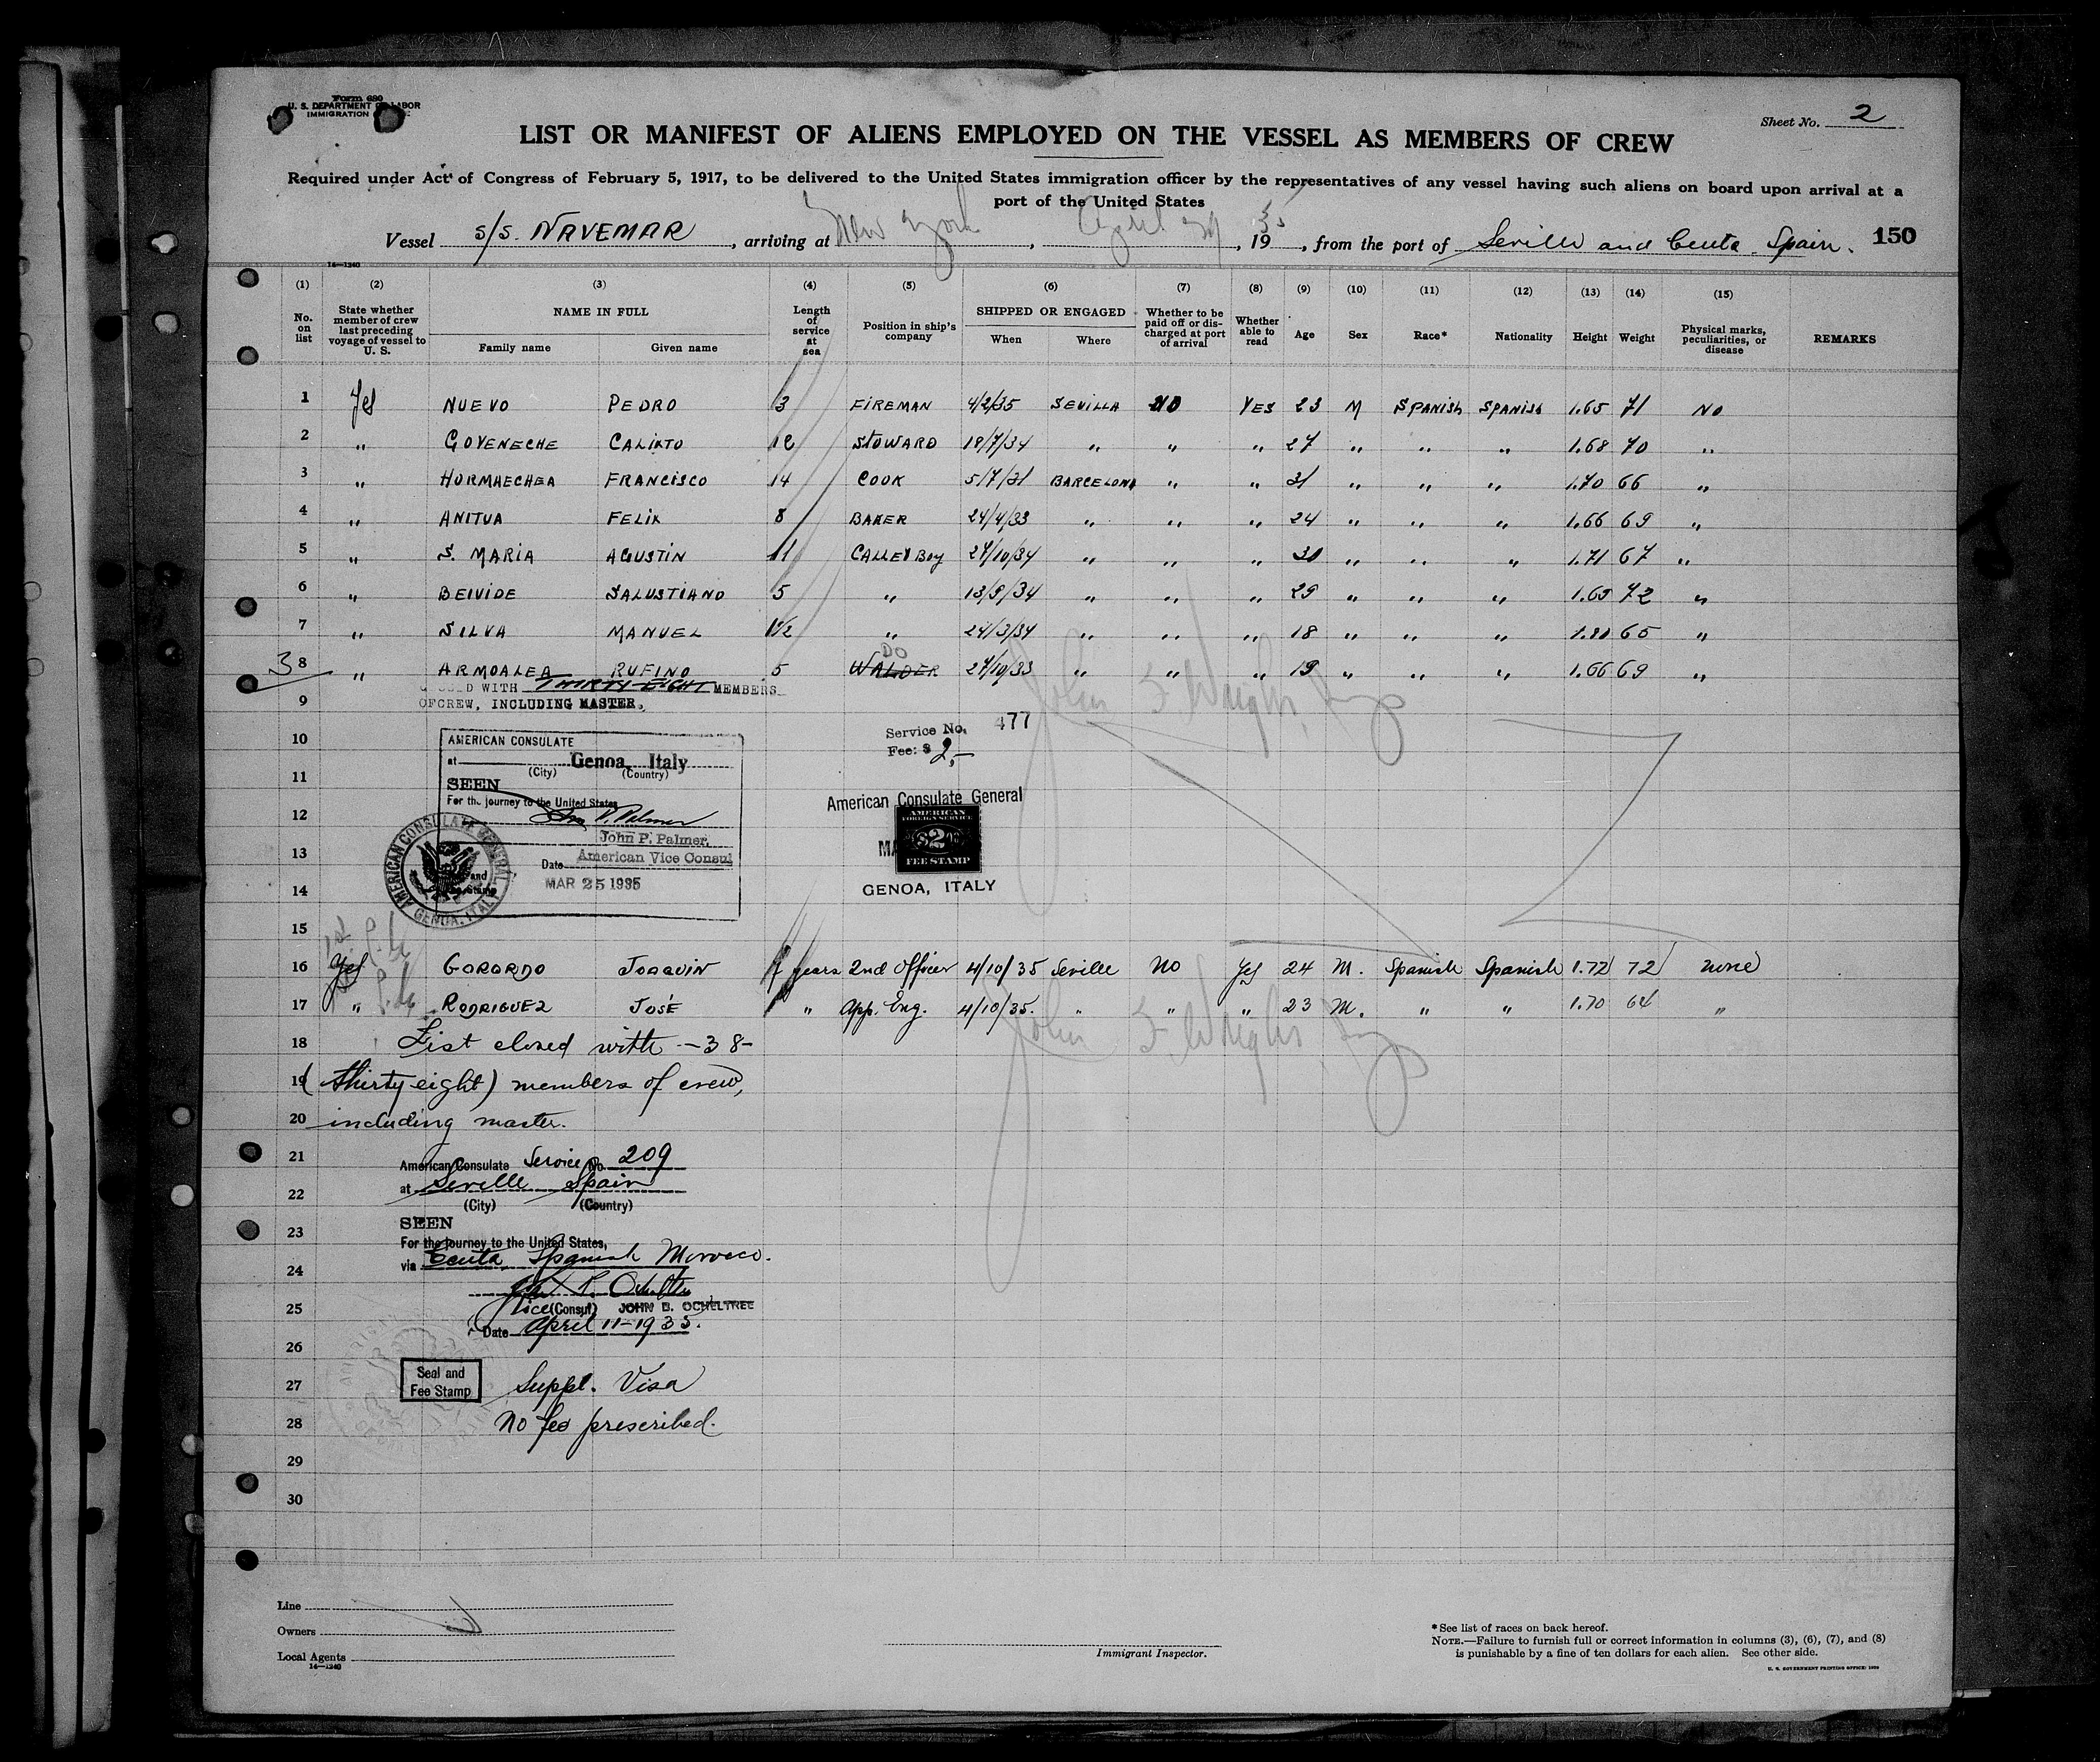 Form 680
U. S. DEPARTMENT OF LABOR
IMMIGRATION
Sheet No. 2
LIST OR MANIFEST OF ALIENS EMPLOYED ON THE VESSEL AS MEMBERS OF CREW
Required under Act of Congress of February 5, 1917, to be delivered to the United States immigration officer by the representatives of any vessel having such aliens on board upon arrival at a
port of the United States
Vessel S/S. NAVEMAR, arriving at New York, April, 1935, from the port of Seville and Ceuta. Spain. 150
14—1240
(1) (2) (3) (4) (5) (6) (7) (8) (9) (10) (11) (12) (13) (14) (15)
No. on list
State whether member of crew last preceding voyage of vessel to U. S.
NAME IN FULL
Family name Given name
Length of service at sea
Position in ship's company
SHIPPED OR ENGAGED
When Where
Whether to be paid off or discharged at port of arrival
Whether able to read
Age Sex Race* Nationality Height Weight
Physical marks, peculiarities, or disease
REMARKS
1 Yes NUEVO PEDRO 3 FIREMAN 4/2/35 SEVILLA NO YES 23 M SPANISH SPANISH 1.65 71 NO
2 " GOYENECHE CALIXTO 12 STOWARD 18/7/34 " " " 27 " " " 1.68 70 "
3 " HORMAECHEA FRANCISCO 14 COOK 5/7/31 BARCELONA " " 31 " " " 1.70 66 "
4 " ANITUA FELIX 8 BAKER 24/4/33 " " " 24 " " " 1.66 69 "
5 " S. MARIA AGUSTIN 11 CALLEY BOY 27/10/34 " " " 30 " " " 1.71 67 "
6 " BEIVIDE SALUSTIANO 5 " 13/9/34 " " " 29 " " " 1.69 72 "
7 " SILVA MANUEL 1½ " 24/3/34 " " " 18 " " " 1.80 65 "
DO
38 " ARMOALEA RUFINO 5 WALDER 27/10/33 " " " 19 " " " 1.66 69 "
CLOSED WITH THIRTY EIGHT MEMBERS
9 OF CREW, INCLUDING MASTER.
John F. Wright
10 AMERICAN CONSULATE
Service No. 477
Fee: $ 2,-
at Genoa, Italy
(City) (Country)
11 SEEN
For the journey to the United States
American Consulate General
12 Jno P. Palmer
AMERICAN FOREIGN SERVICE
$2
FEE STAMP
John P. Palmer,
13 Date American Vice Consul
MAR 25 1935
AMERICAN CONSULATE GENERAL GENOA, ITALY
14 GENOA, ITALY
15
16 Yes GORORDO JOAQUIN 7 years 2nd Officer 4/10/35 Seville NO Yes 24 M. Spanish Spanish 1.72 72 none
17 " RODRIGUEZ JOSÉ " App. Eng. 4/10/35. " " " 23 M. " " 1.70 64 "
John F. Wright
18 List closed with -38-
19 (thirty-eight) members of crew,
20 including master.
21 American Consulate Service No. 209
22 at Seville Spain
(City) (Country)
23 SEEN
For the journey to the United States,
24 via Ceuta, Spanish Morocco.
25 Vice (Consul) JOHN B. OCHELTREE
Date April 11-1935.
26
27 Seal and Fee Stamp Suppl. Visa
28 No fee prescribed.
29
30
Line
Owners
Local Agents
14—1240
Immigrant Inspector.
*See list of races on back hereof.
NOTE.—Failure to furnish full or correct information in columns (3), (6), (7), and (8)
is punishable by a fine of ten dollars for each alien. See other side.